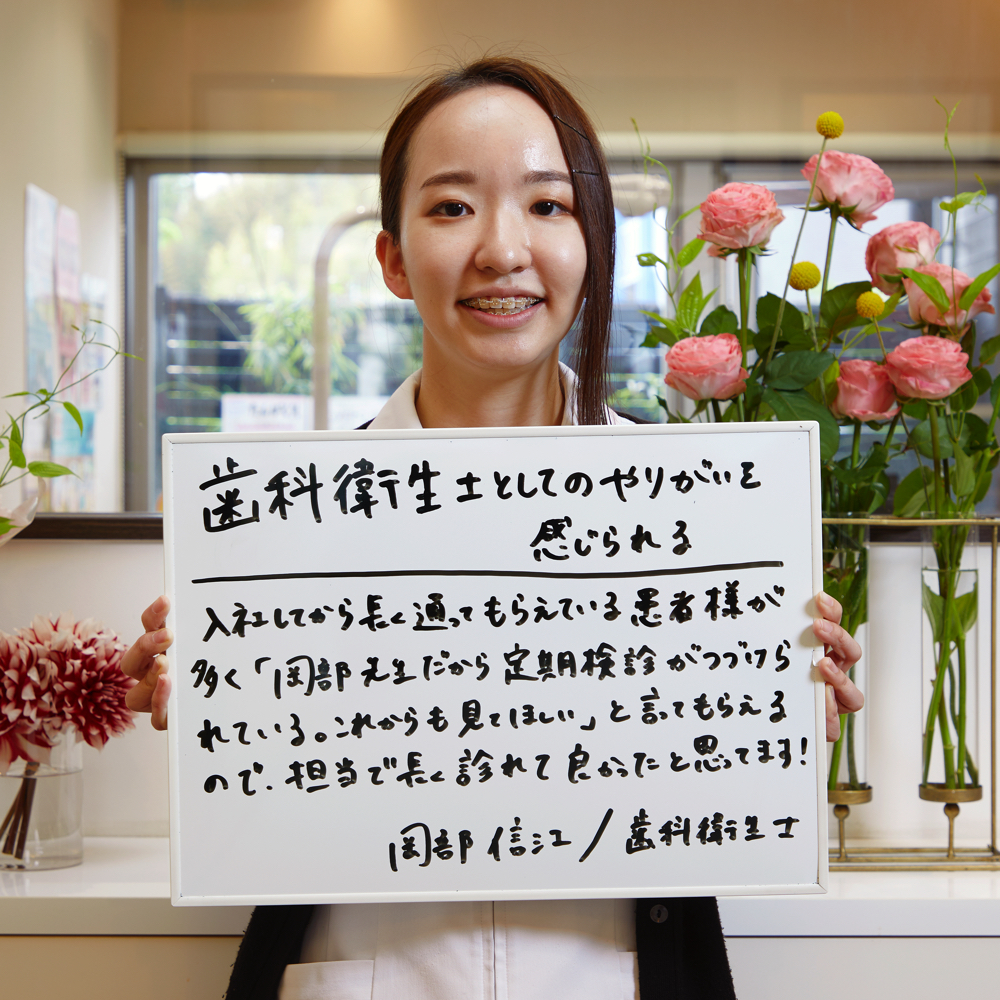 歯科衛生士としてのやりがいを
感じられる
入社してから長く通ってもらえている患者様が
多く「岡部先生だから定期検診がつづけら
れている。これからも見てほしい」と言ってもらえる
ので、担当で長く診れて良かったと思ってます!
岡部信江/歯科衛生士